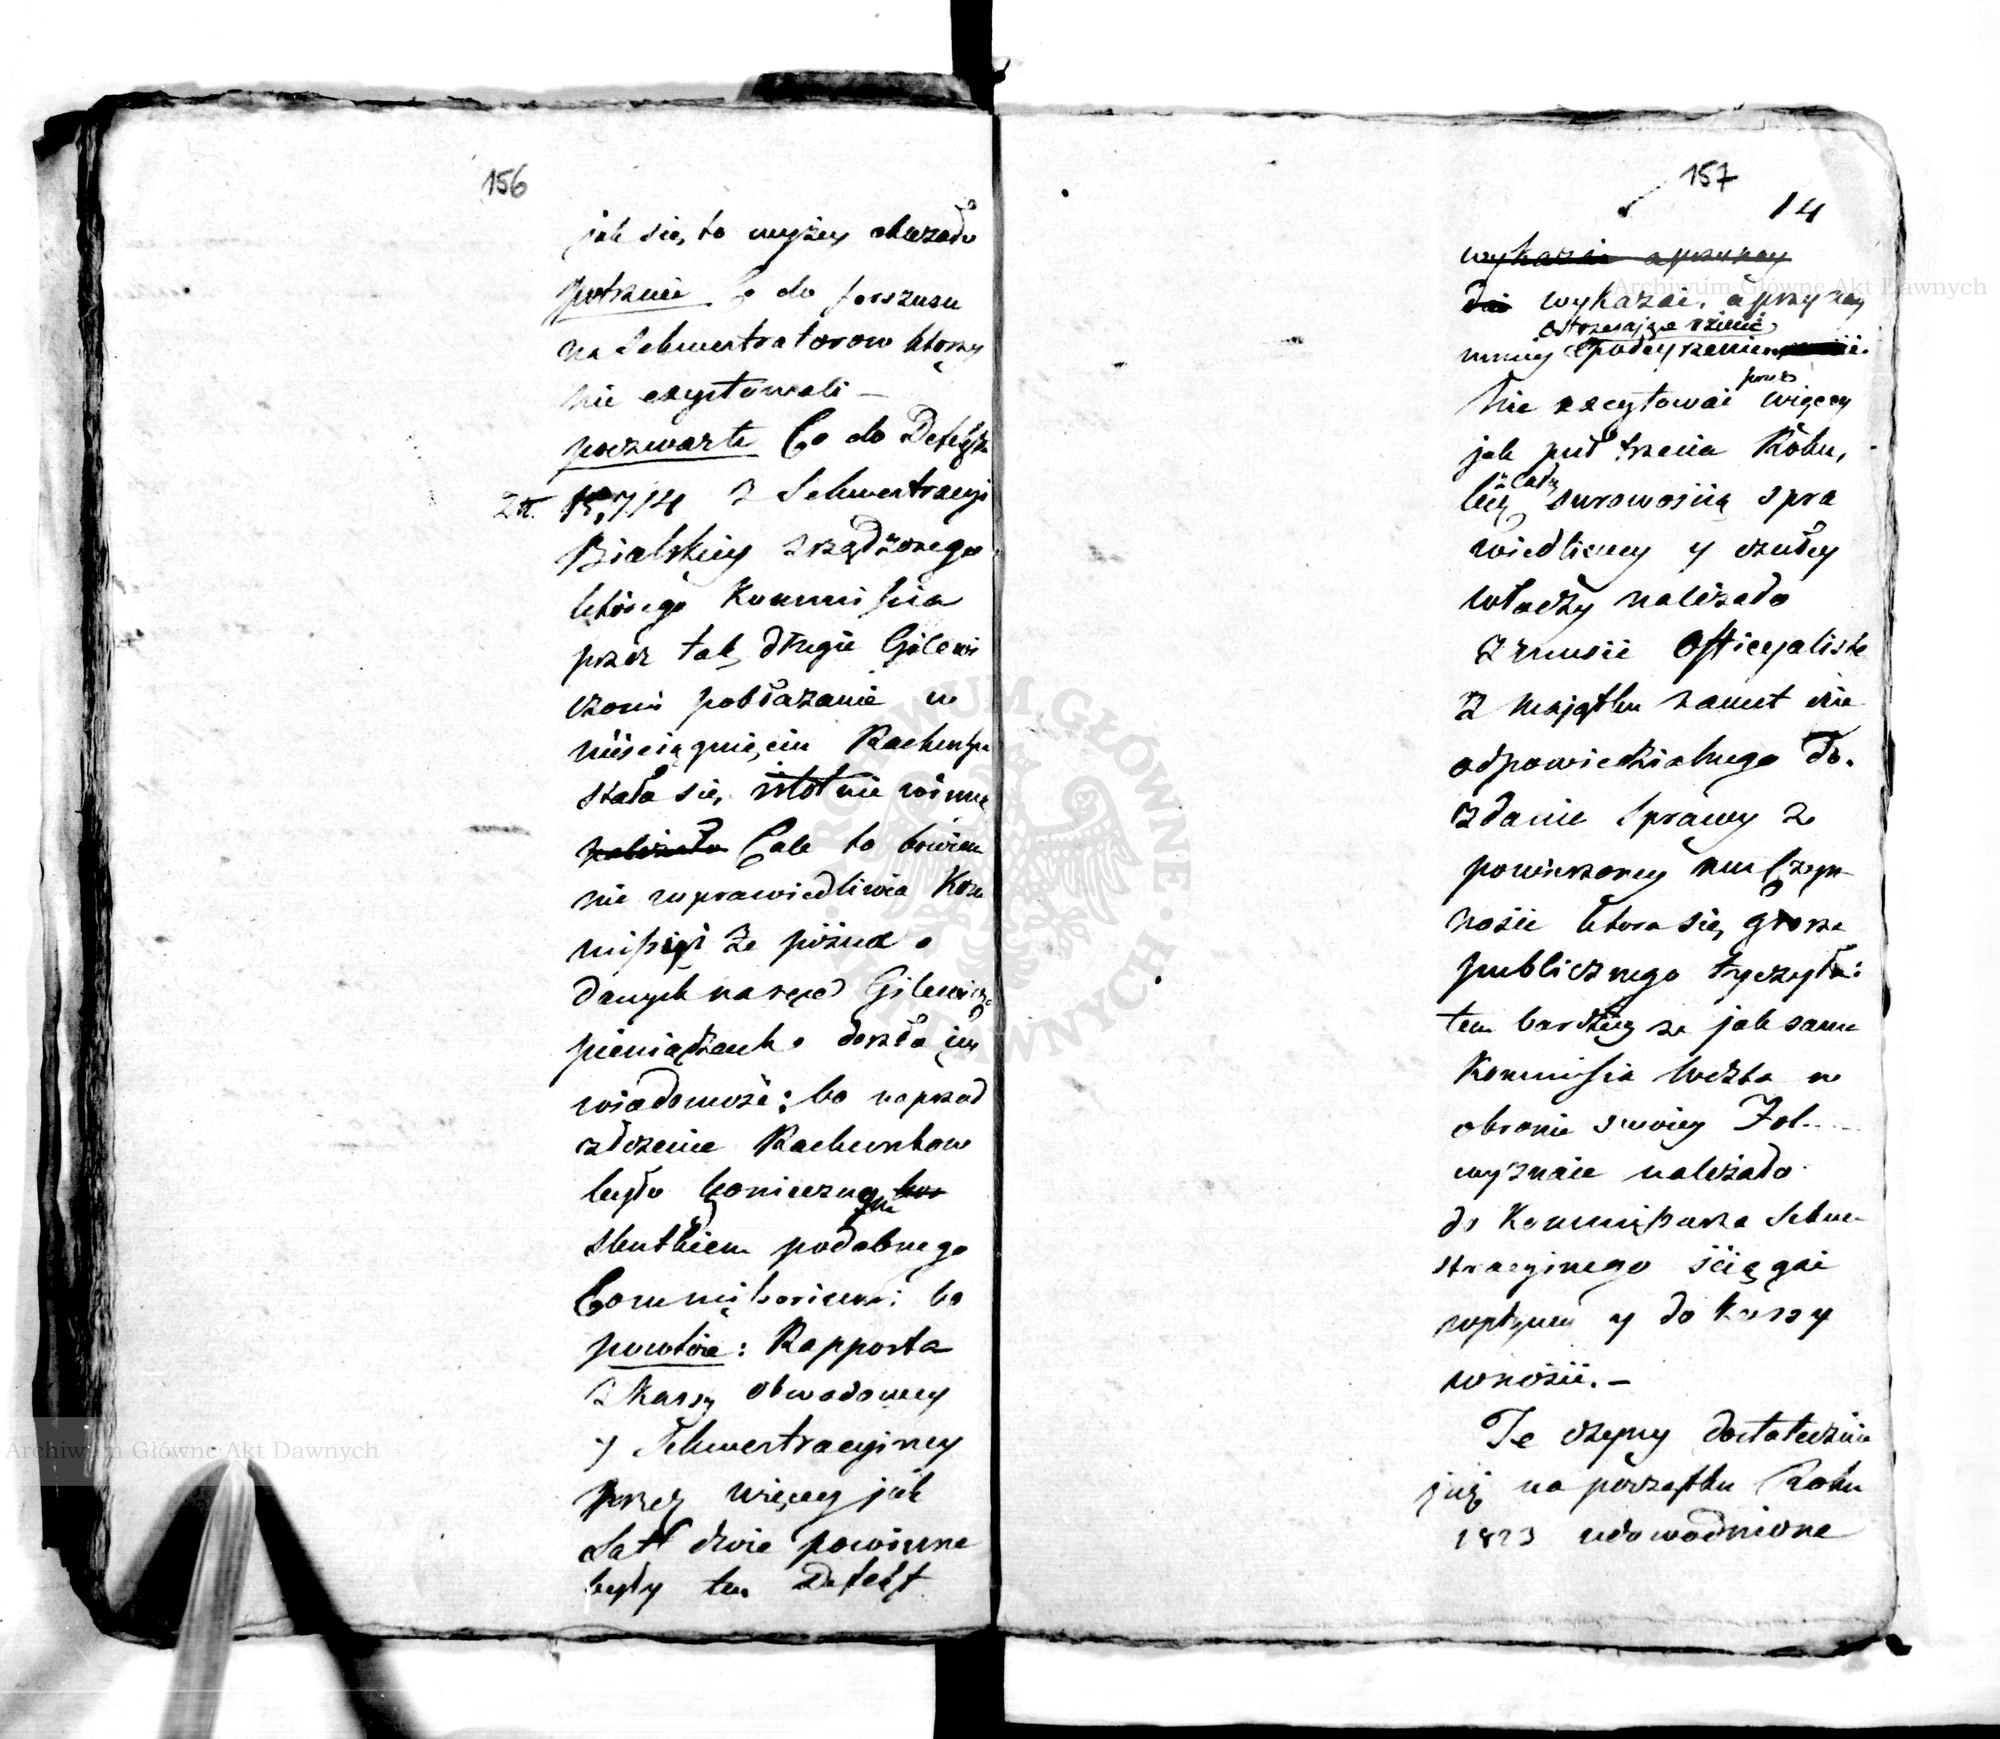 156
jak się to wyżey okazało
potrzecie Co do forszusu
na Sekwestratorow ktorzy
nie exystowali —
poczwarte Co do Defektu
Zł. 15,714 z Sekwestracyi
Bialskiey zrządzonego
którego Kommissia
przez tak długie Gilewi
czowi pobłażanie w
nieściągnięciu Rachunku
stała się istotnie winną
należało Całe to bowiem
nie usprawiedliwia Kom
missyi że późno o
danych naręce Gilewicza
pieniądzach doszła iey
wiadomość; bo naprzód
złożenie Rachunkow
było koniecznym
skutkiem podobnego
Commissorium; bo
powtóre: Rapporta
z Kassy obwodowey
y Sekwestracyiney
przez więcey jak
Lat dwie powinne
były ten Defekt
157
14
wykazać a przynay
wykazać, a przynay
ostrzegające
mniey podeyrzenie
Nie excytować przez więcey
jak puł trzecia Roku,
lecz z całą surowością spra
wiedliwey y czułey
władzy należało
zmusić Officyalistę
z majątku nawet nie
odpowiedzialnego do
zdanie sprawy ze
powierzoney mu Czyn
ności ktora się grosza
publicznego tyczyła:
tem bardziey że jak sama
Kommissia
obronie swoiey
wyznaie należało
do Kommissarza Sekwe
stracyinego ściągać
wpływu y do Kassy
wnosić. —
Te czyny dostatecznie
już na początku Roku
1823 udowodnione
Archiwum Główne Akt Dawnych
Archiwum Główne Akt Dawnych
ARCHIWUM GŁÓWNE · AKT DAWNYCH ·